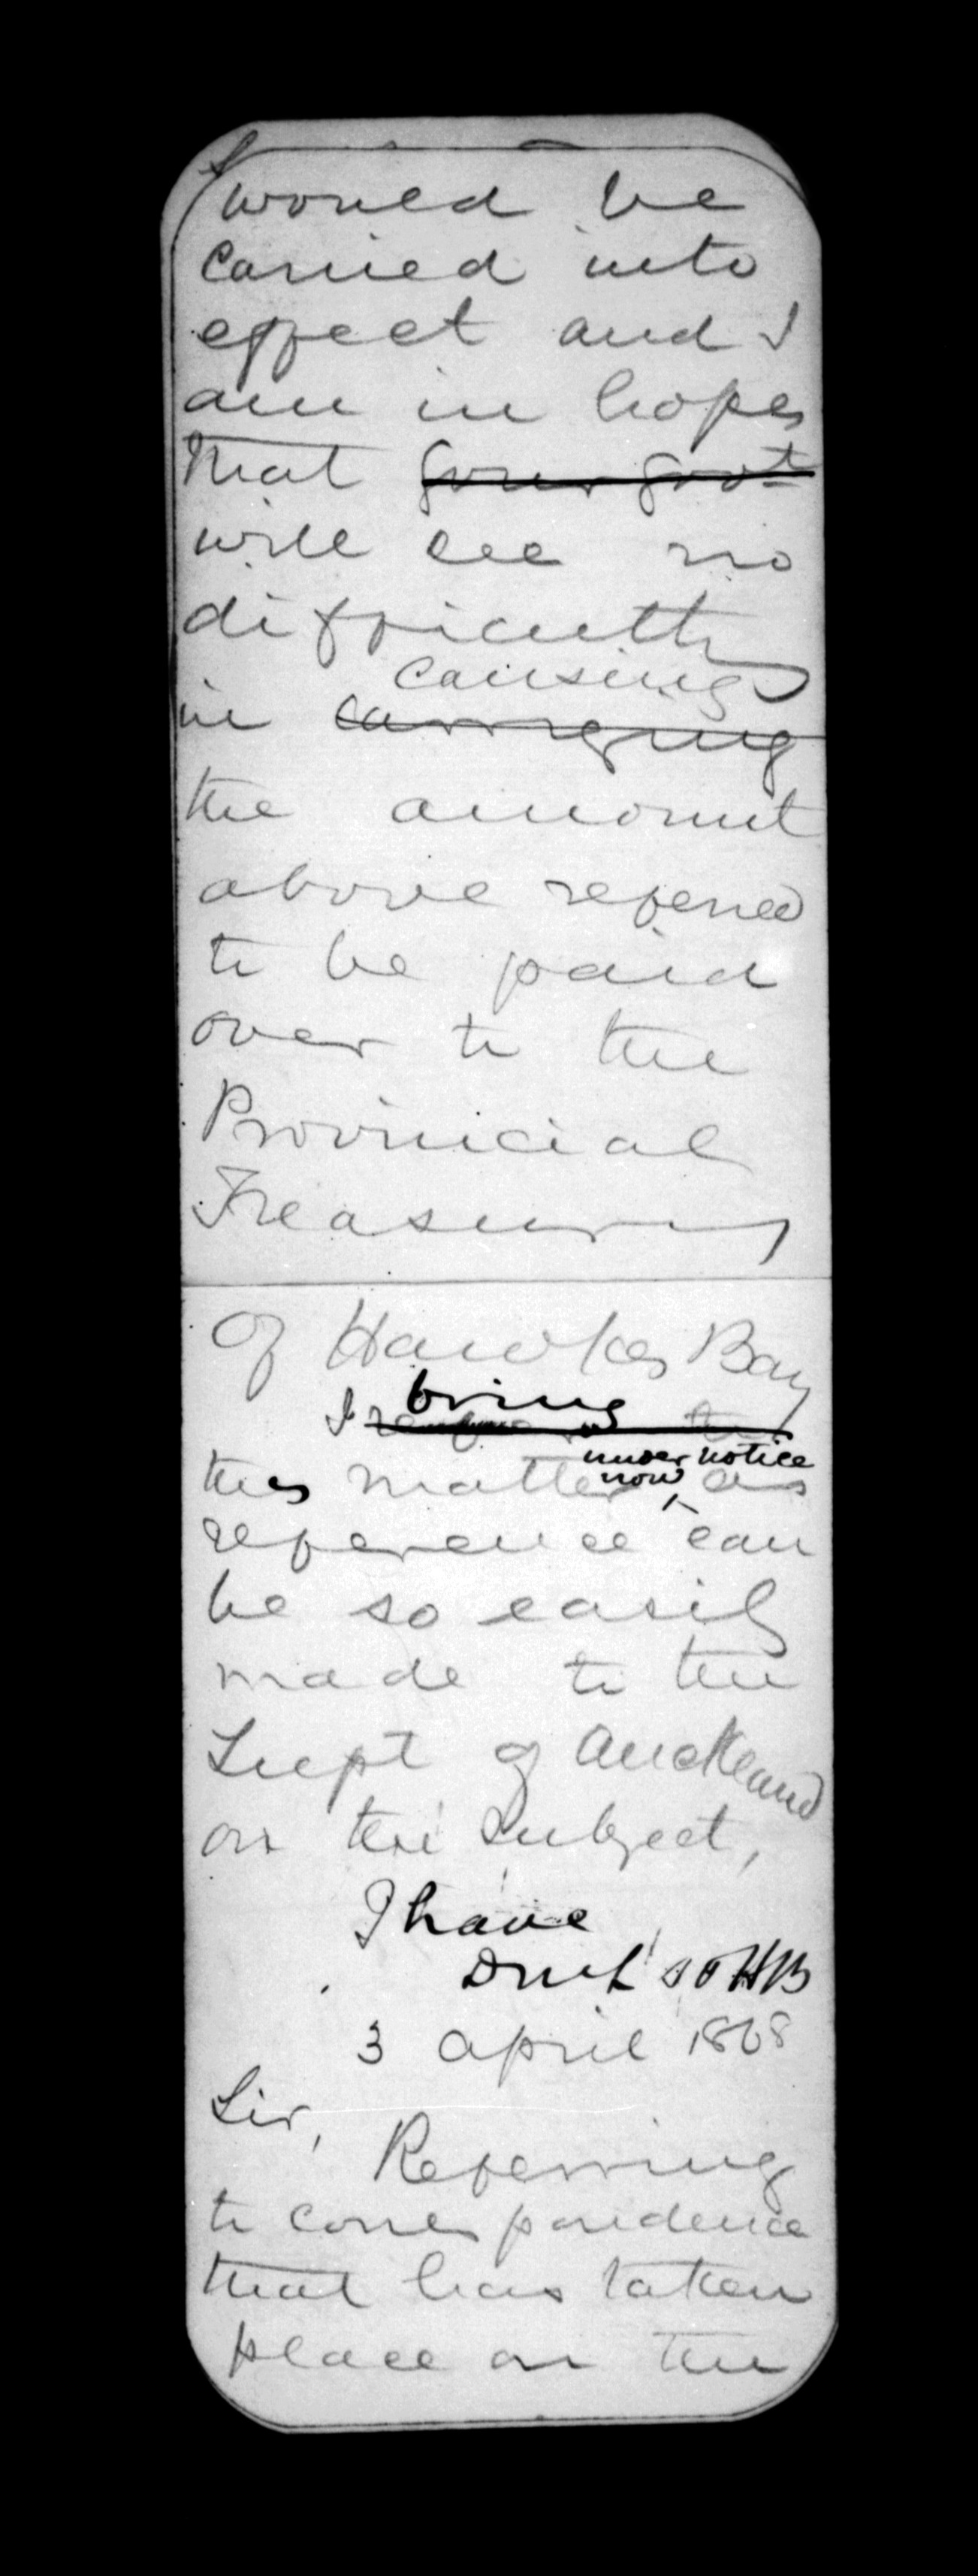 would be
carried into
effect and I
am in hopes
that your govt
will see no
difficulty
causing
in carrying
the amount
above referred
to be paid
over to the
Provincial
Treasury
Of Hawkes Bay
bring
I refer to
under notice
this matter now as
reference can
be so easily
made to the
Supt of Auckland
on the subject,
I have
DMcL SOHB
3 april 1868
Sir,
Referring
to correspondence
that has taken
place on the